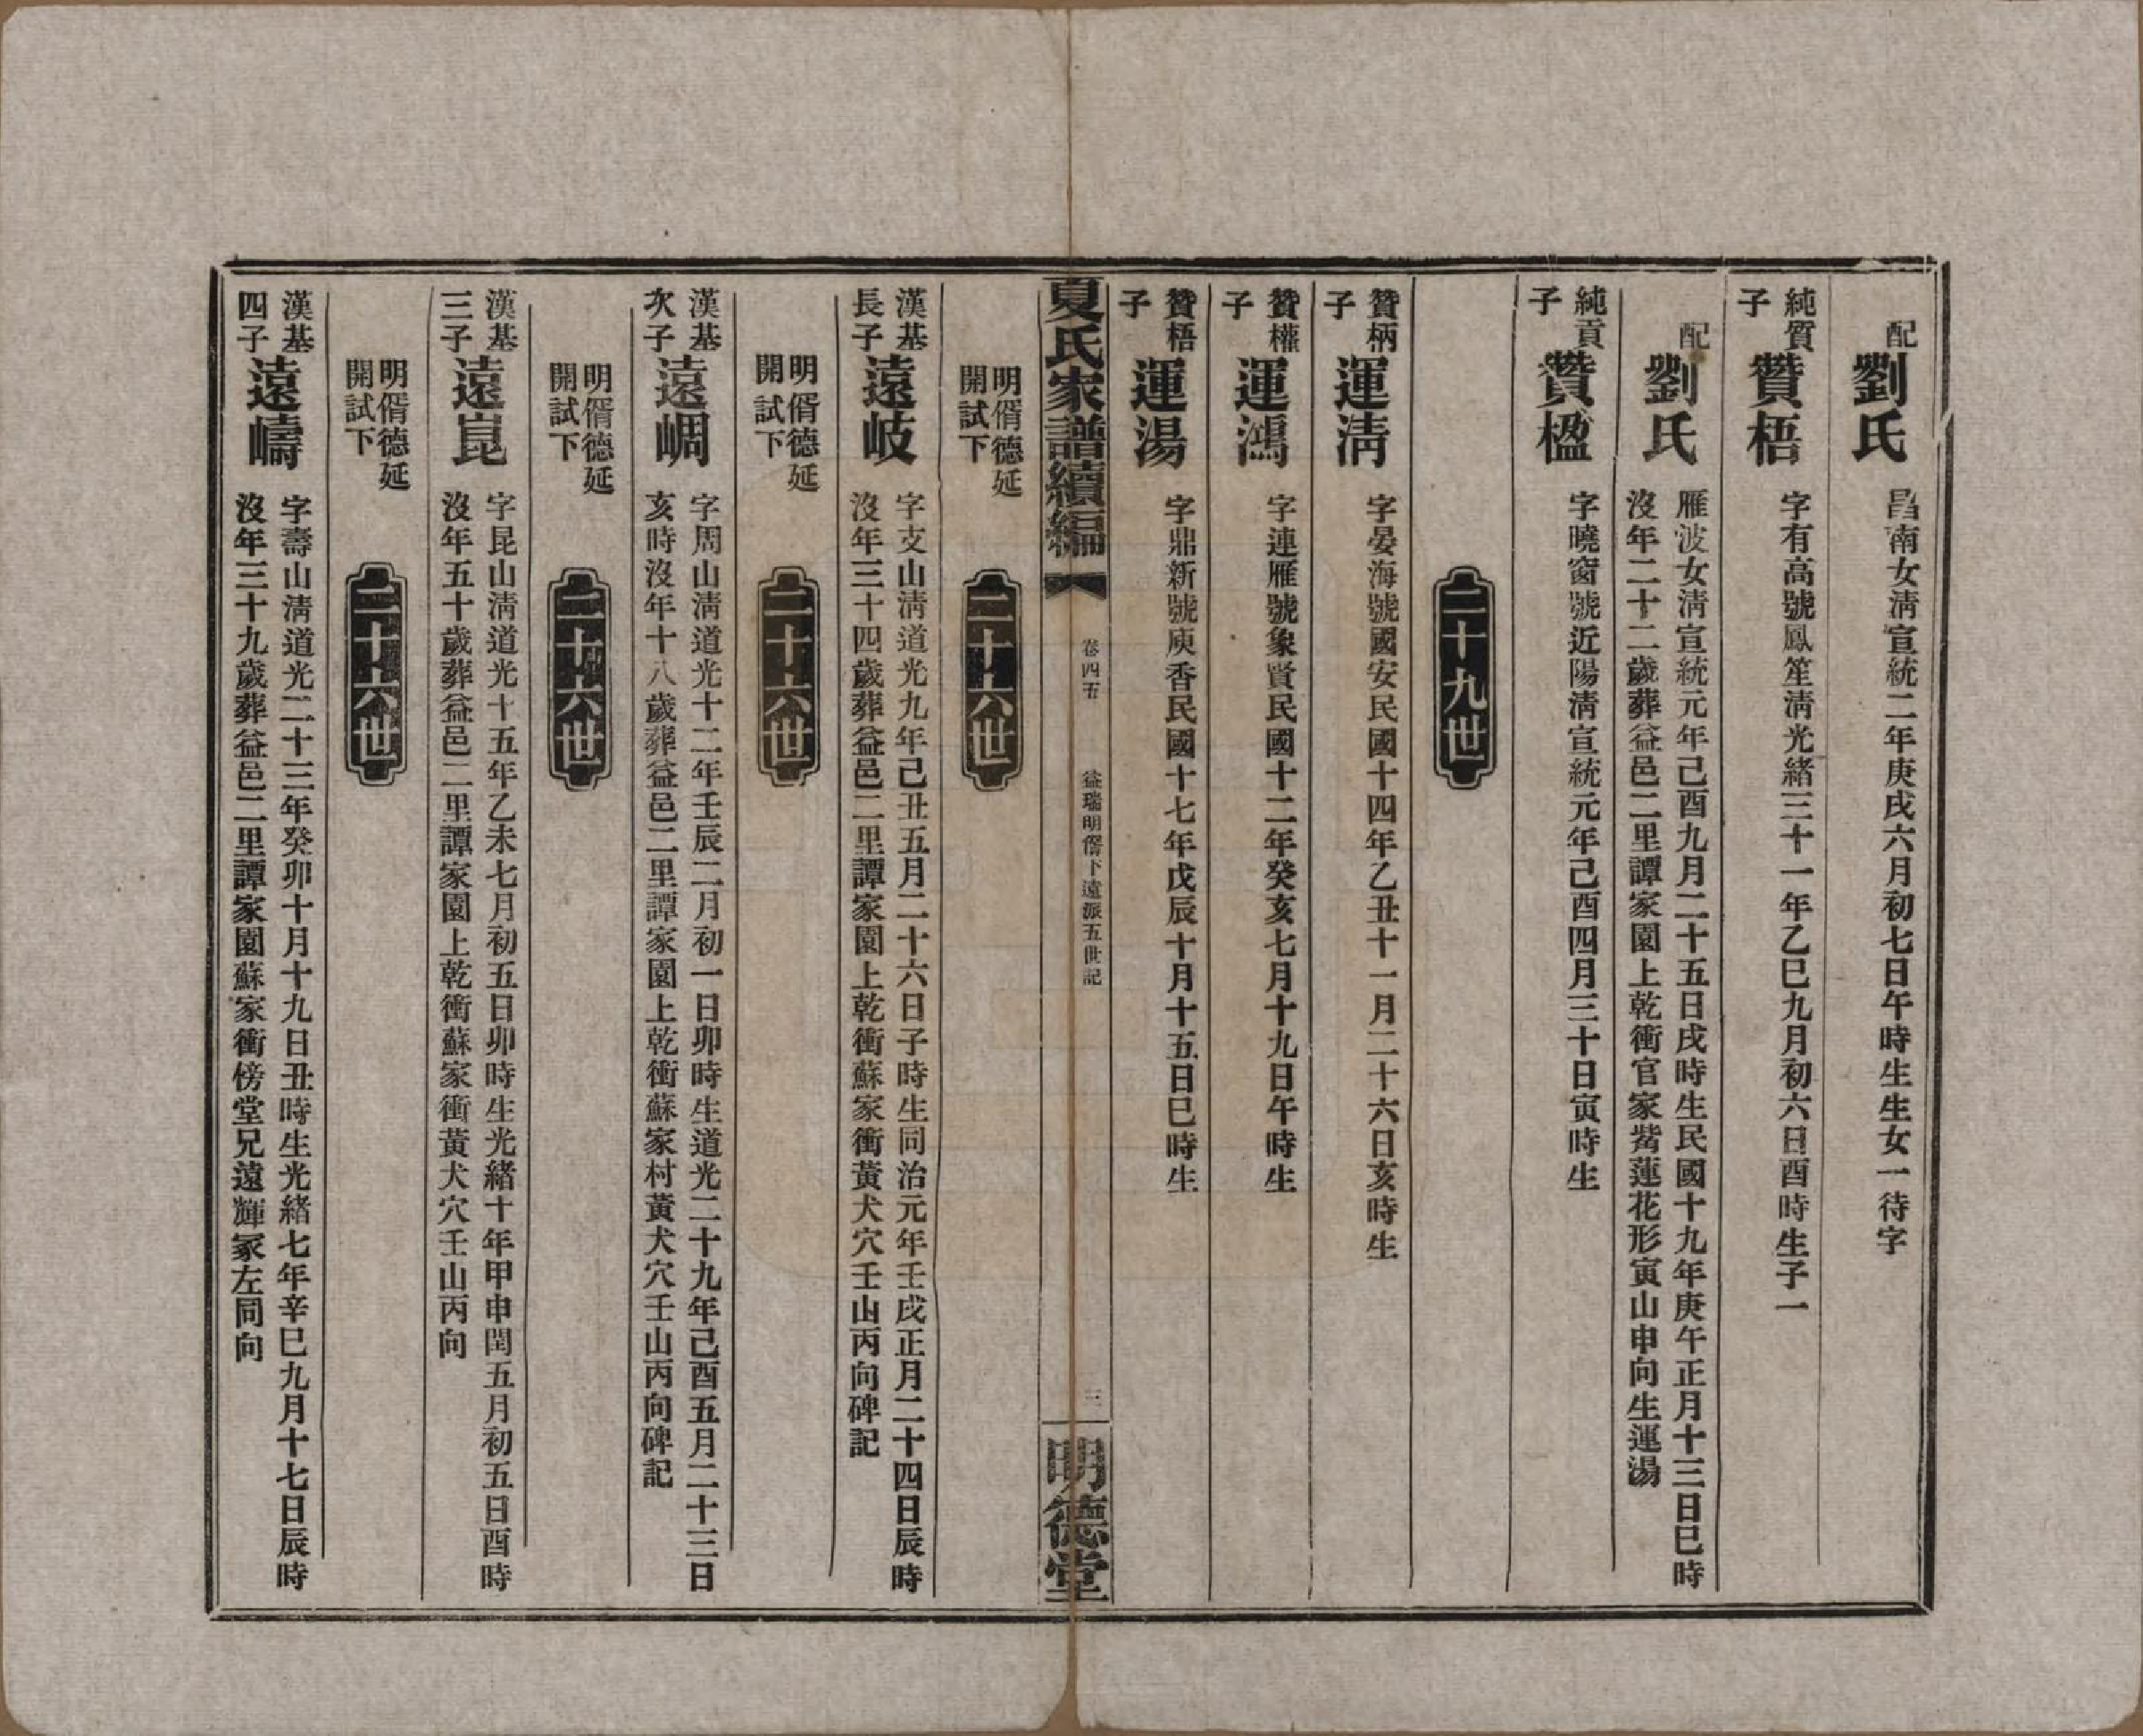 配劉氏 昌南女清宣統二年庚戌六月初七日午時生生女一待字
純質子 贊梧 字有高號鳳笙清光緒三十一年乙巳九月初六日酉時生子一
配劉氏 雁波女清宣統元年己酉九月二十五日戌時生民國十九年庚午正月十三日巳時
沒年二十二歲葬益邑二里譚家園上乾衝官家嘴蓮花形寅山申向生運湯
純貢子 贊楹 字曉窗號近陽清宣統元年己酉四月三十日寅時生
二十九世
贊柄子 運清 字晏海號國安民國十四年乙丑十一月二十六日亥時生
贊櫵子 運鴻 字連雁號象賢民國十二年癸亥七月十九日午時生
贊梧子 運湯 字鼎新號庾香民國十七年戊辰十月十五日巳時生
夏氏家譜續編 卷四五 益瑞明偦下遠派五世記 三 明德堂
明偦德延
開試下
二十六世
漢基長子 遠岐 字支山清道光九年己丑五月二十六日子時生同治元年壬戌正月二十四日辰時
沒年三十四歲葬益邑二里譚家園上乾衝蘇家衝黃犬穴壬山丙向碑記
明偦德延
開試下
二十六世
漢基次子 遠峒 字周山清道光十二年壬辰二月初一日卯時生道光二十九年己酉五月二十三日
亥時沒年十八歲葬益邑二里譚家園上乾衝蘇家村黃犬穴壬山丙向碑記
明偦德延
開試下
二十六世
漢基三子 遠崑 字昆山清道光十五年乙未七月初五日卯時生光緒十年甲申閏五月初五日酉時
沒年五十歲葬益邑二里譚家園上乾衝蘇家衝黃犬穴壬山丙向
明偦德延
開試下
二十六世
漢基四子 遠嶹 字壽山清道光二十三年癸卯十月十九日丑時生光緒七年辛巳九月十七日辰時
沒年三十九歲葬益邑二里譚家園蘇家衝傍堂兄遠輝冢左同向